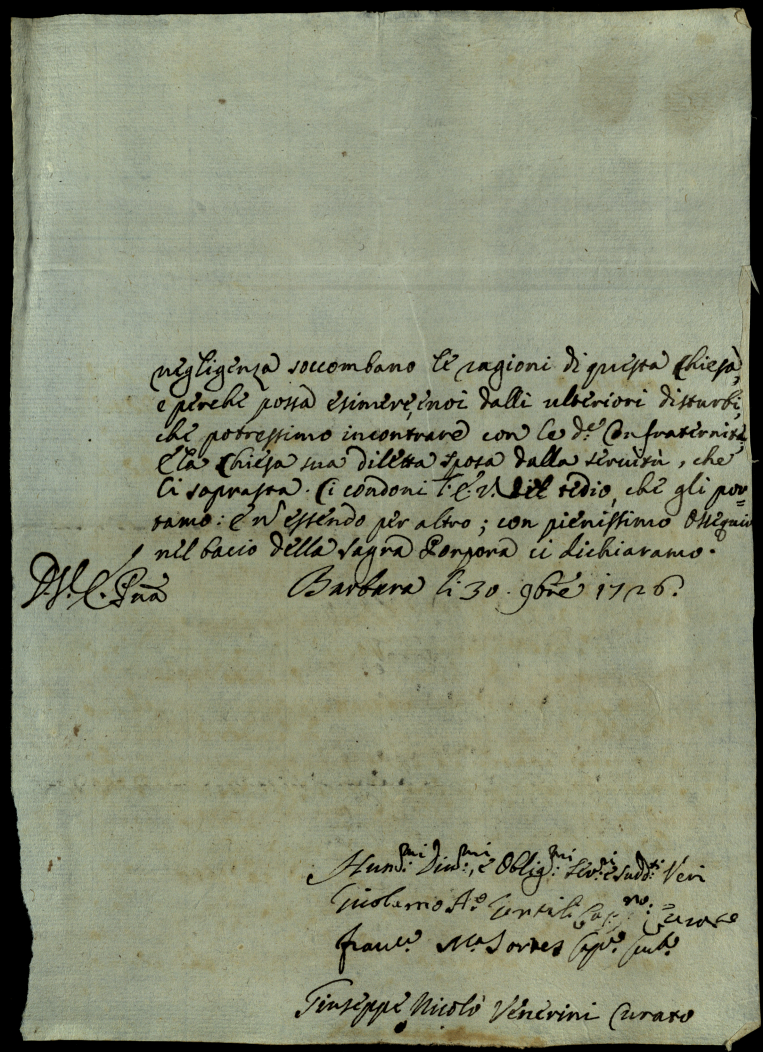 negligenza soccombano le ragioni di questa Chiesa,
e perche possa esimere, e noi dalli ulteriori disturbi,
che potressimo incontrare con le d.e Confraternite,
e la Chiesa sua diletta sposa dalla servitù, che
li soprasta. Ci condoni l'E. V. del tedio, che gli por=
tamo: e n̄ essendo per altro; con pienissimo Ossequio
nel bacio della sagra Porpora ci dichiaramo.
D. V. E. Pn̄a
Barbara li 30. 9bre 1726.
Hum.mi Div.mi, e Oblig.mi Ser.ri e sudd.ti Veri
Girolamo A.o Gentili Cap.no: Curato
Fran.co M.a
Giuseppe Nicolò Venerini Curato